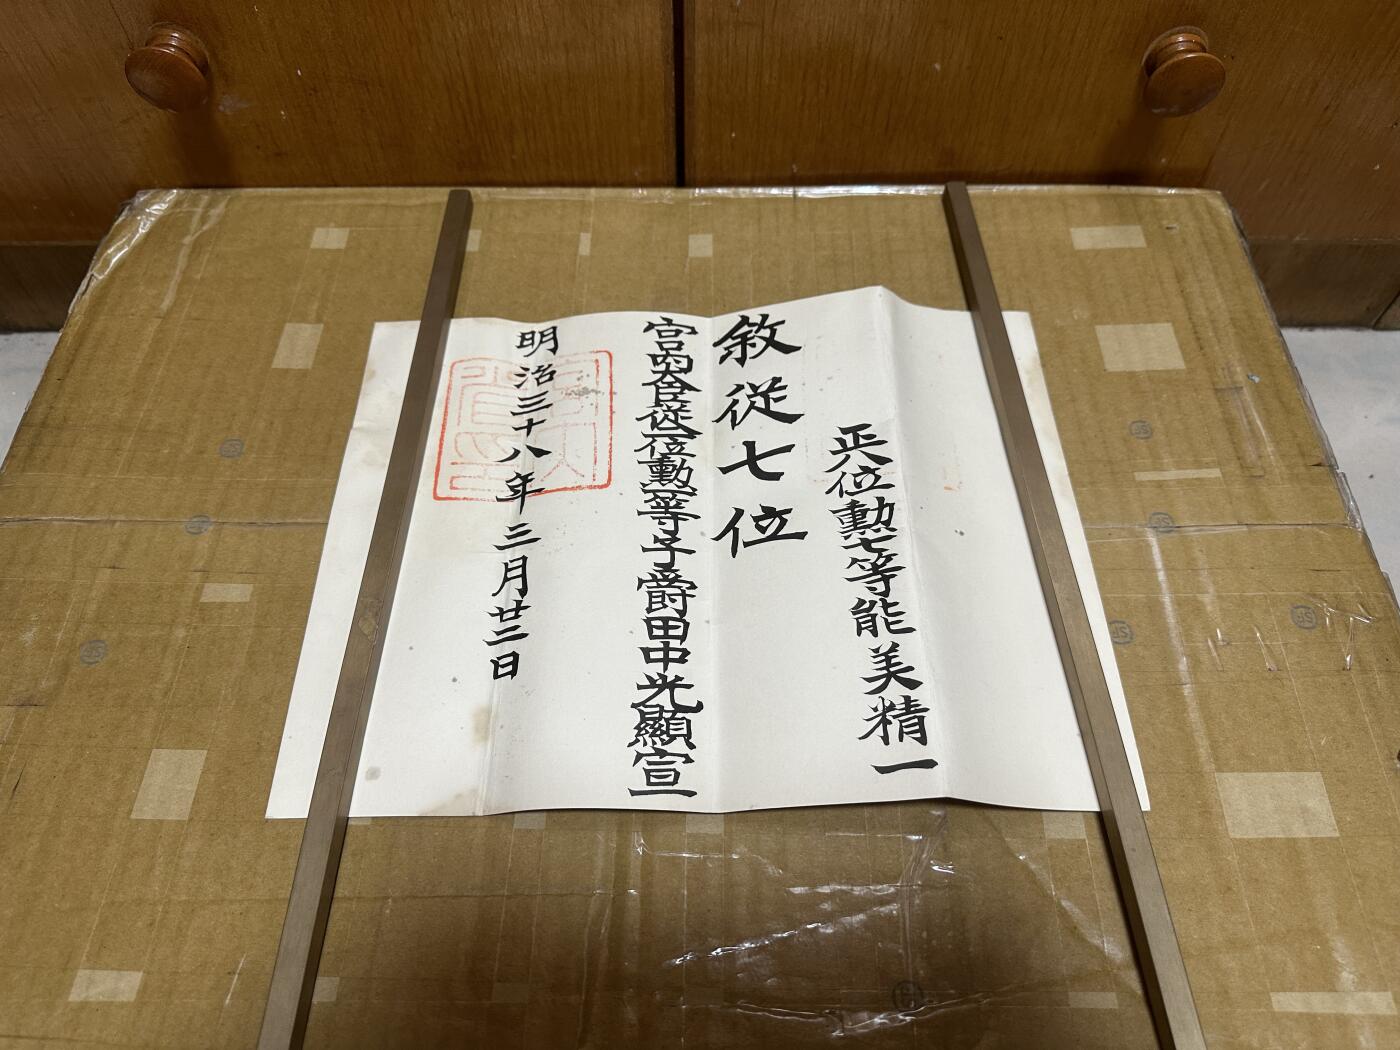 正八位勳七等能美精一
敘從七位
宮內大臣從二位勳一等子爵田中光顯宣
明治三十八年三月廿三日